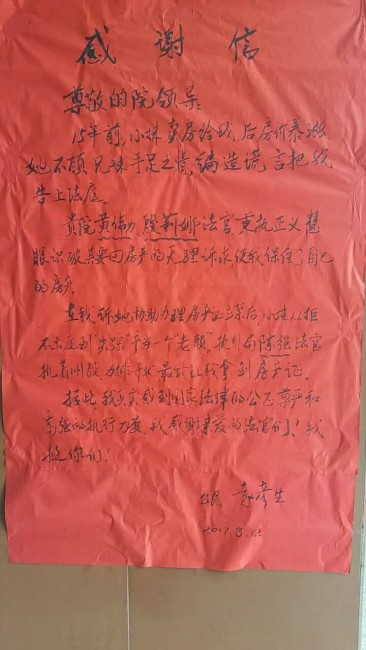 感谢信
尊敬的院领导:
15年前,小妹卖房给我,后房价暴涨
她不顾兄妹手足之情,编造谎言把我
告上法庭。
贵院黄伟力、殷莉娜法官秉执正义慧
眼识破其要回房产的无理诉求使我保住了自己
的房产
在我诉她协助办理房产证立案后小妹以拒
不出庭到“失踪”干等一个老赖。执行局陈强法官
执着 最终让我拿到房产证。
据此,我真实感到国家法律的公正尊严和
高强的执行力度,我感谢亲爱的法官们!我
挺你们!
2017.3.